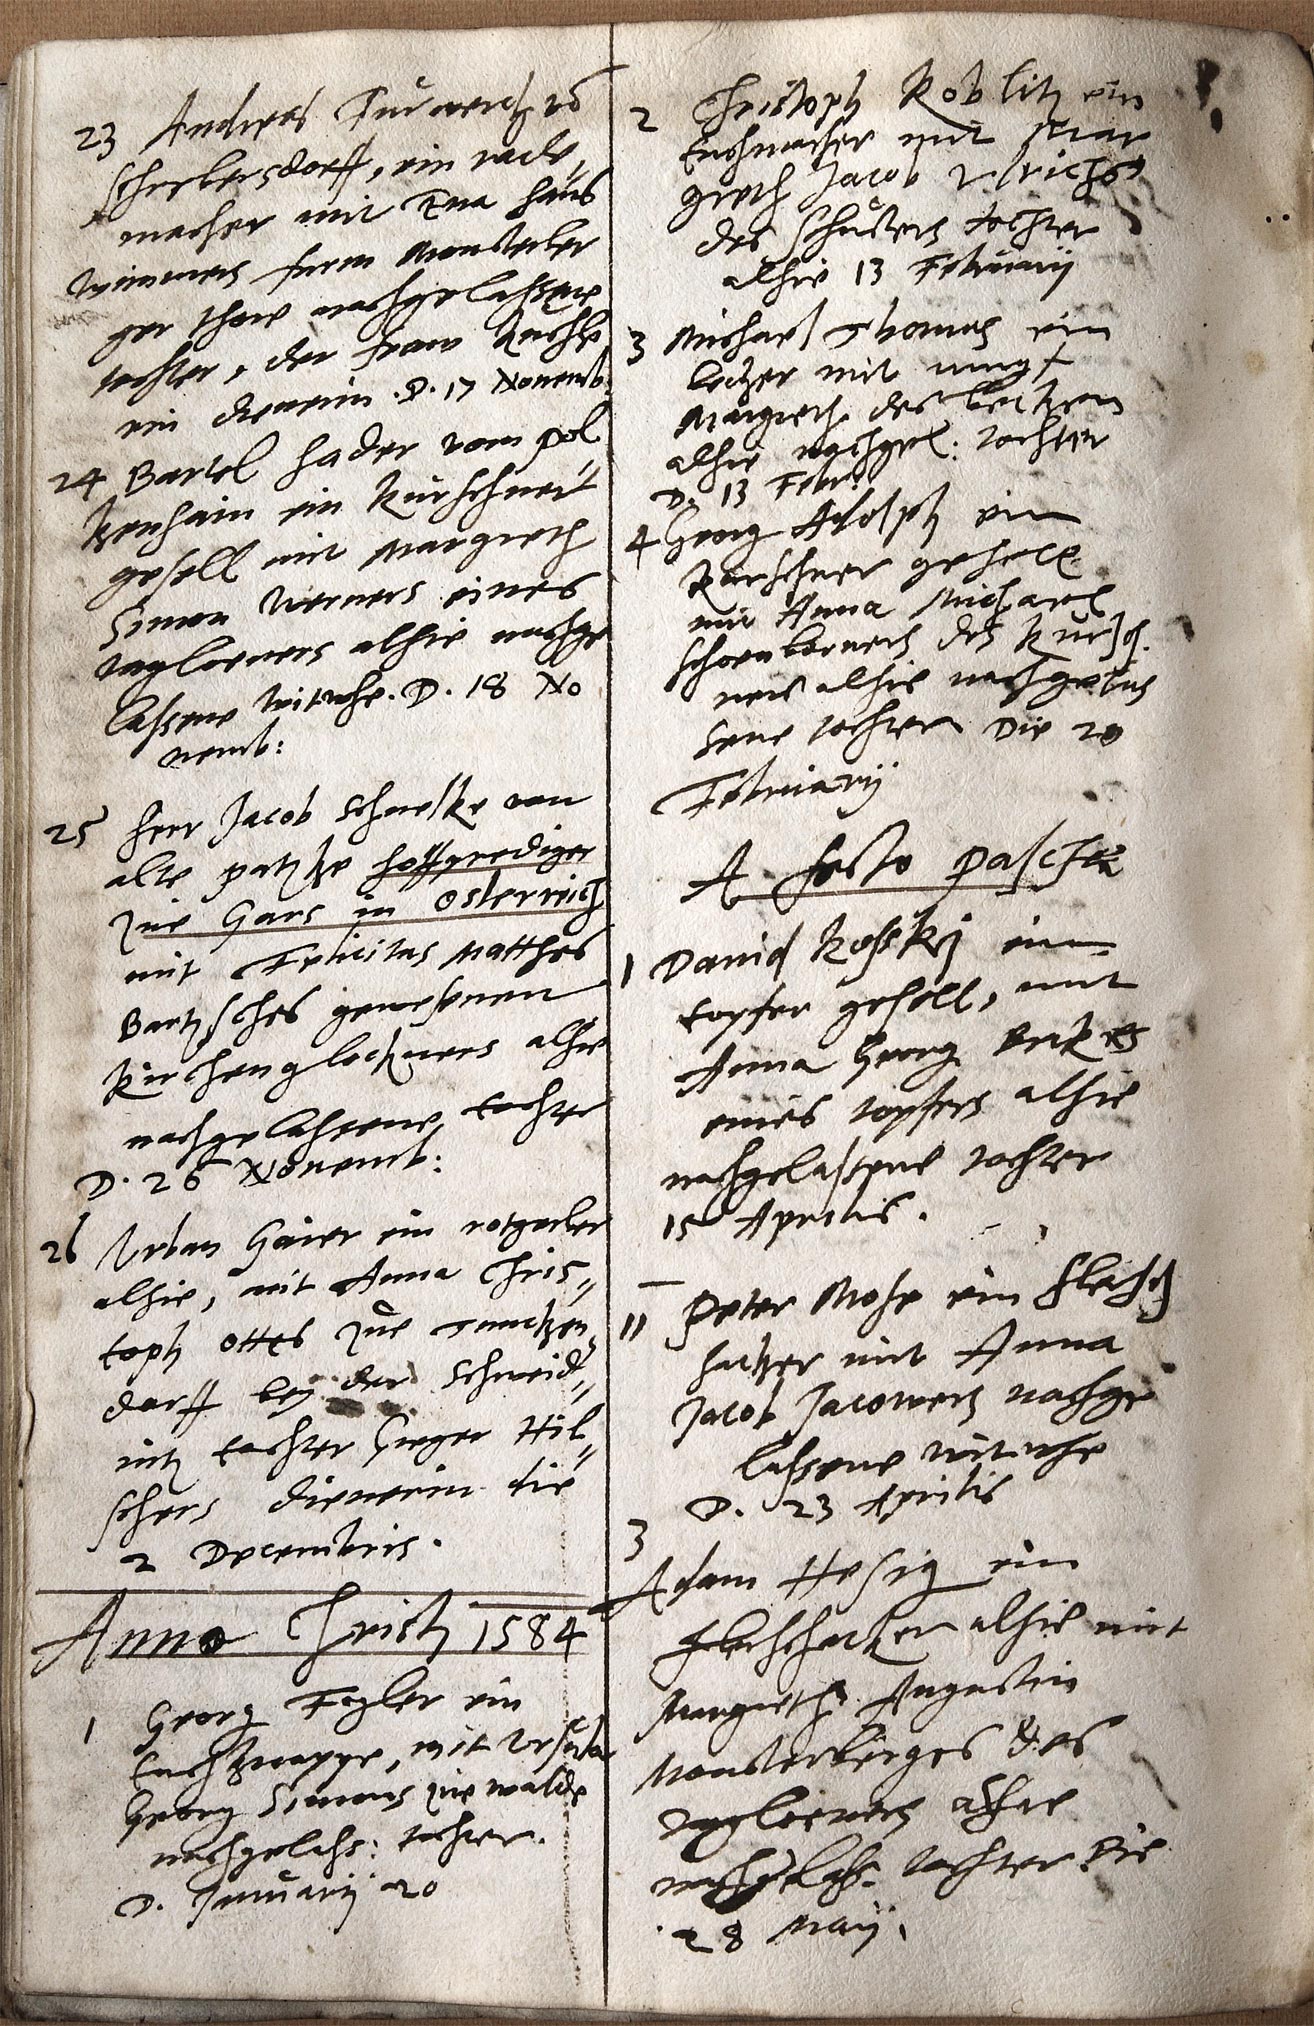 23 Andreas
Scherbersdorff, ein rade,,
macher mit Eva Hans
Wimmers
ger thore nachgelassene
tochter, der fraw
in dienerin. D. 17 Novemb:
24 Bartel Hader vom Pol
kenhain ein Kürschner
gesell mit Margreth
Simon Werners eines
tagloeners alhie nachge
lassene witwhe. D. 18 No
uemb:
25 Herr Jacob Scheske von
alte patzke Hoffprediger
zue Gars in Osterreich
mit Felicitas Matthes
Bartsches gewesenen
Kirchenglockners alhie
nachgelassene tochter
D. 26 Nouemb:
26 Urban Gaier ein rotgerber
alhie, mit Anna Chris,,
toph Ottes zue
dorff bey der Schweid,,
nitz tochter Gregor Hil,,
schers dienerin die
2 Decembris.
Anno Christi 1584
1 Georg Fogler ein
tuchknappe, mit Ursula
Georg Simons zue walde
nachgelass: tochter.
D. Januarij 20
2 Christoph Koblitz ein
tuchmacher mit Mar
greth Jacob Ulrichs
des Schusters tochter
alhie 13 Februarij
3 Michael Thomas ein
becker mit
Margreth des beckers
alhie nachgel: tochter
D. 13 Febr:
4 Georg Adolph ein
Kurschner gesell
mit Anna Michael
Schornborners des Kürsch
ners alhie nachgelas
sene tochter Die 20
Februarij
A festo Paschae
1 Dauid Kosski ein
topfer gesell, mit
Anna Georg
eines topfers alhie
nachgelassene tochter
15 Aprilis.
11 Peter Mohe ein flesch
hacker mit Anna
Jacob Jacowers nachge
lassene witwhe
D. 23 Aprilis
3
Adam Hesig ein
fleischhacker alhie mit
Margreth Augustin
Monsterberges des
tagloeners alhie
nachgelass. tochter Die
28 Maij.